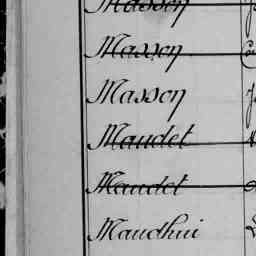 Masson
Masson
Masson
Maudet
Maudet
Maudhui